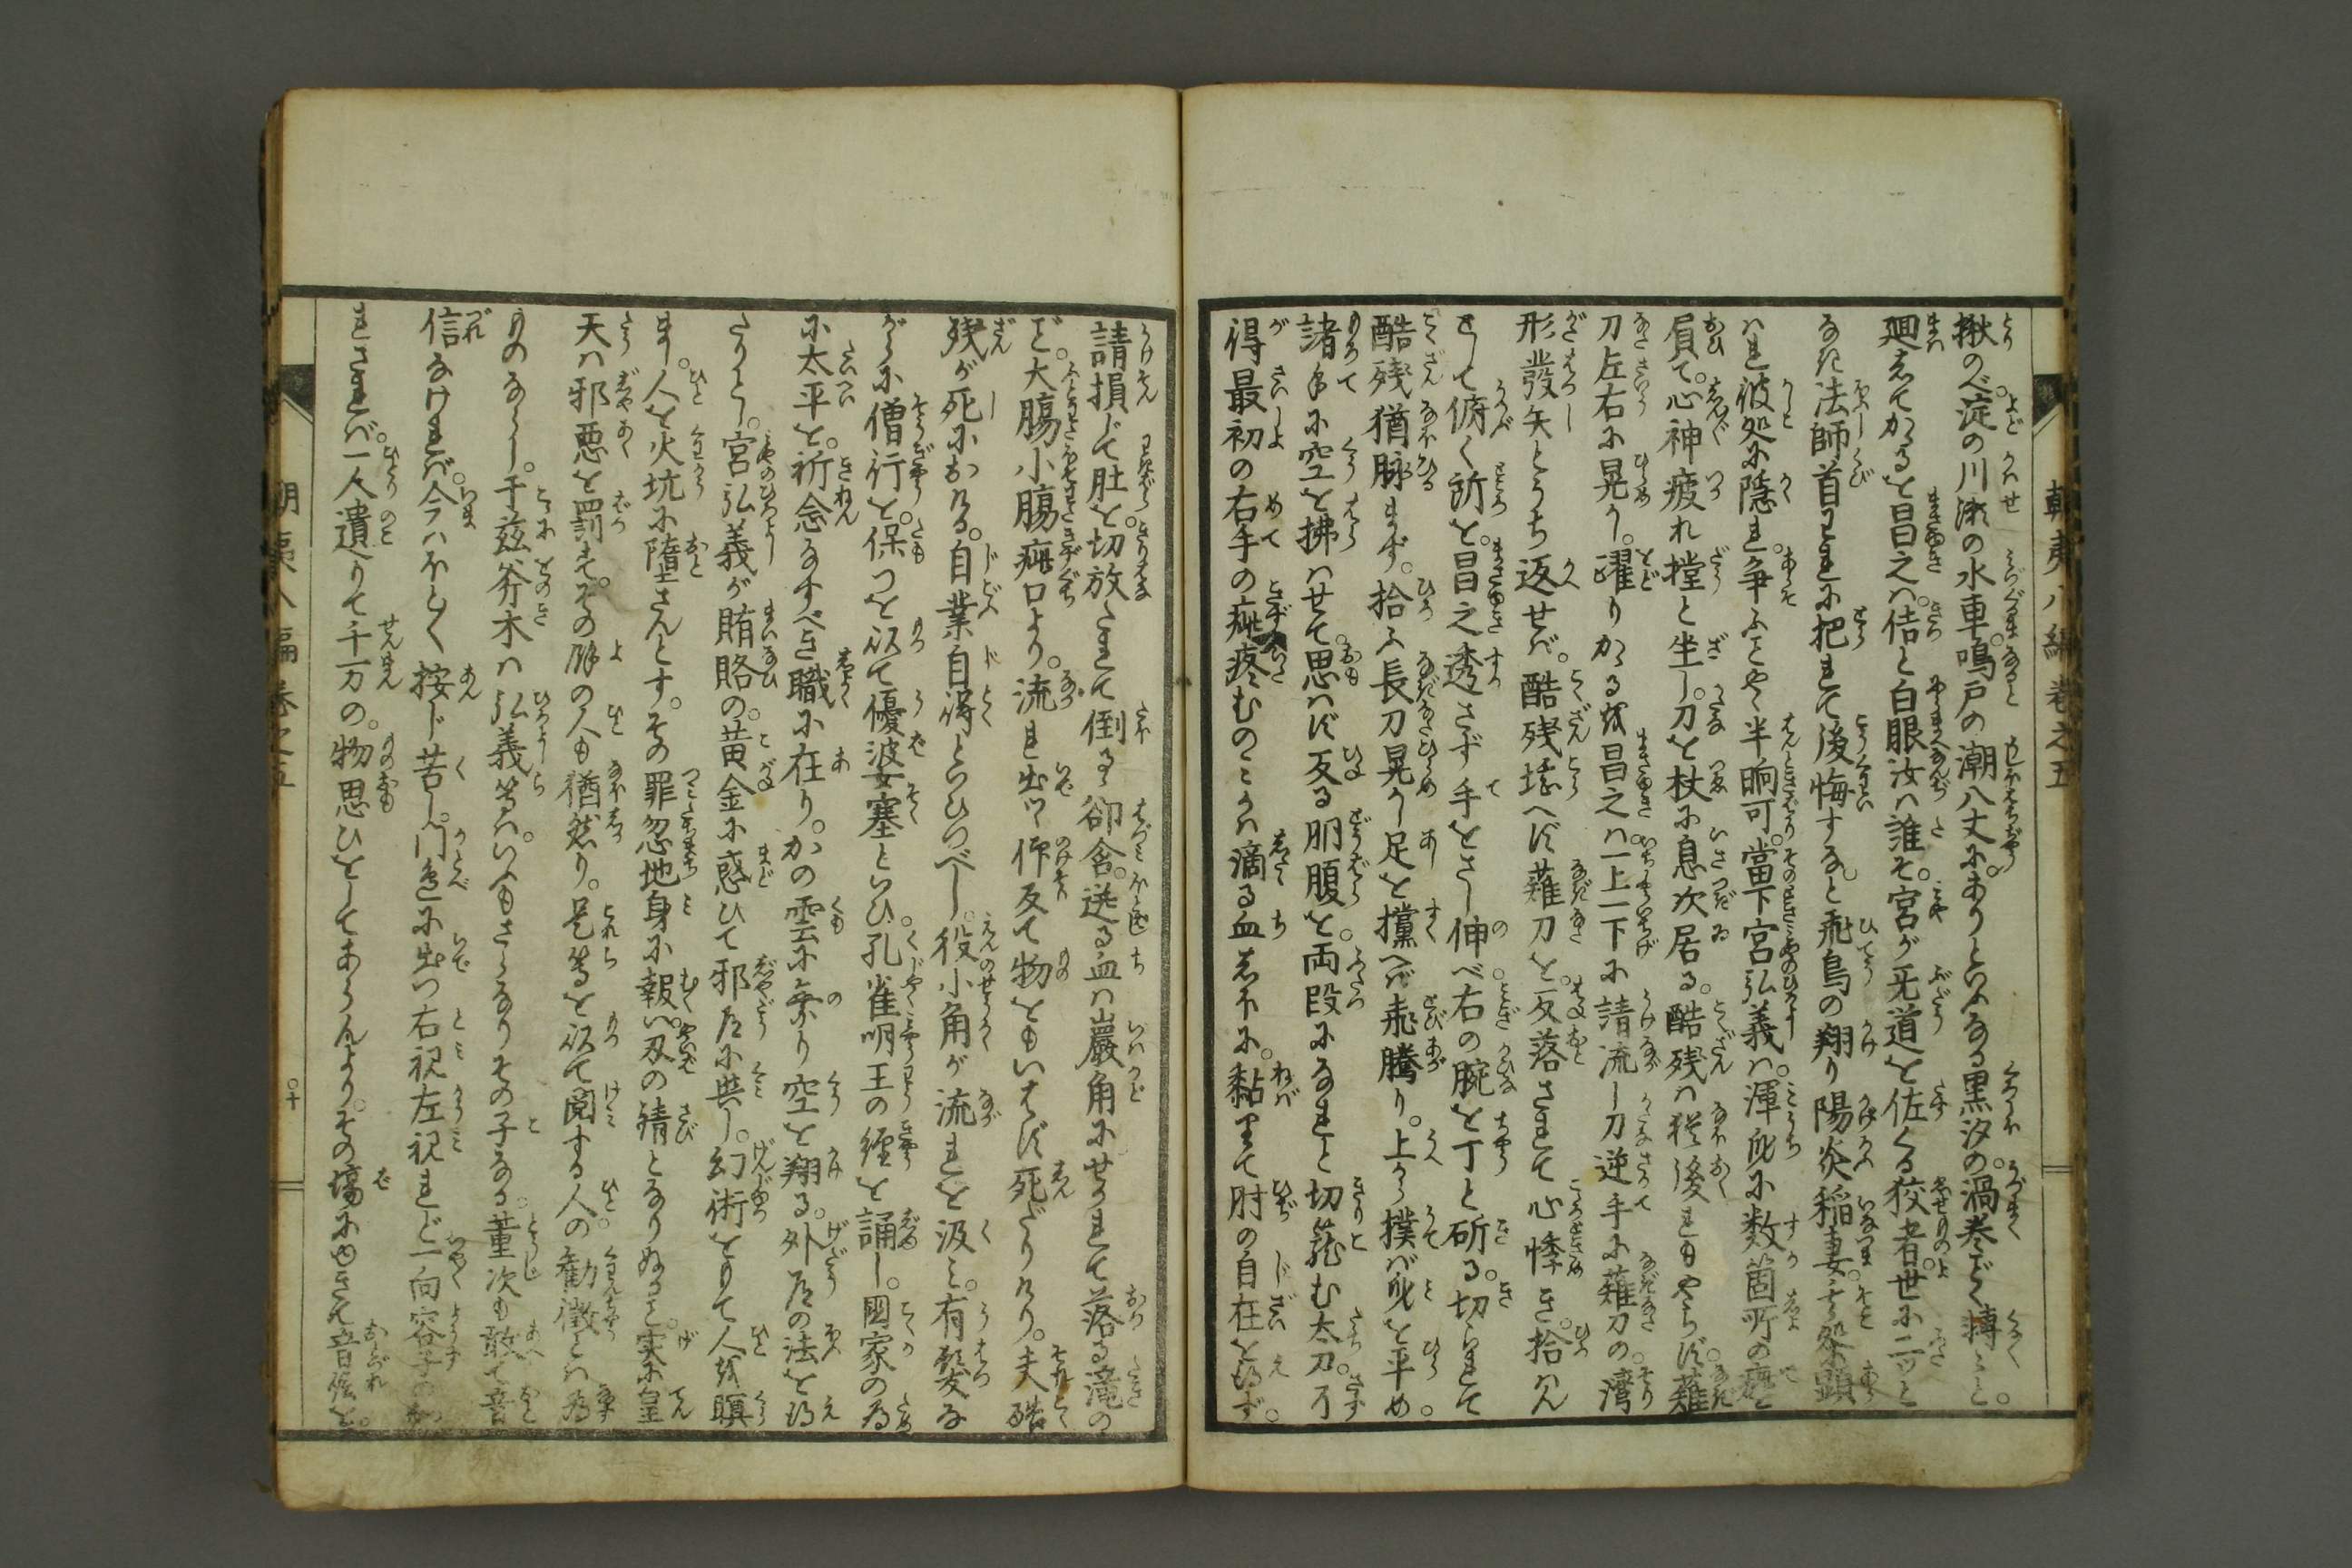 朝夷八編巻之五
楸のべ。淀の川瀬の水車。鳴戸の潮八丈に。ありといふなる黒汐の。渦巻ごとく
廻してかゝると昌之ハ。佶と白眼汝ハ誰そ。宮が无道を佐くる狡者。世に二ツと
なき法師首われに把れて後悔するな。と飛鳥の翔り陽炎稲妻。
ハれ彼処に隠れ。争ふことやく半晌可。當下宮弘義ハ。渾身に数箇所の
屓て。心神疲れ摚と坐し。刀を杖に息次居る。酷残ハ猶後れもやらず。薙
刀左右に晃かし。躍りかゝるを昌之ハ。一上一下に請流し刀逆手に薙刀の。湾
形發矢とうち返せば。酷残堪へず薙刀を。反落されて心悸き。拾はん
として俯く所を。昌之透さず手をさし伸べ。右の腕を丁と斫る。切られて
酷残猶陟まず。拾ふ長刀晃かし足を攩へば飛騰り。上から撲ば身を平め
諸手に空を拂ハせて。思ハず反る胴腹を。両段になれと切籠む太刀。
得最初の右手の疵疼むのミかハ滴る血しほに。黏りて肘の自在を得ず。
請損じて肚を。切放たれて倒るゝ卻含。送る血ハ巌角にせかれて落る滝の
ごと。大腸小腸疵口より。流れ出つ仰反て物をもいはず死だりけり。夫酷
残が死におけるハ。自業自得といひつべし。役小角が流れを汲ミ。有髪な
がらに僧行を。保つを以て優波婆塞といひ。孔雀明王の經を誦し。國家の為
に太平を。祈念なすべき職に在り。かの雲に乗り空を翔る。外道の法を得
たりとし。宮弘義が賄賂の。黄金に惑ひて邪道に與し。幻術をもて人を瞋
まし。人を火坑に墮さんとす。その罪忽地身に報ハ。刄の錆となりぬるを。實に皇
天ハ邪悪を罰す。その餘の人も猶然り。是等を以て閲する人の。勧徴とハ為
ものならし。于茲斧木ハ弘義等ハ。いふもさらなりその子なる。菫次も敢て音
信なけれバ。今ハほとほと按じ苦し。門邊に出つ右視左視れど一向容子の
れざれバ。一人遺りて千万の。物思ひをしてあらんより。その場にゆきて音信を。
朝夷八編巻之五
○十